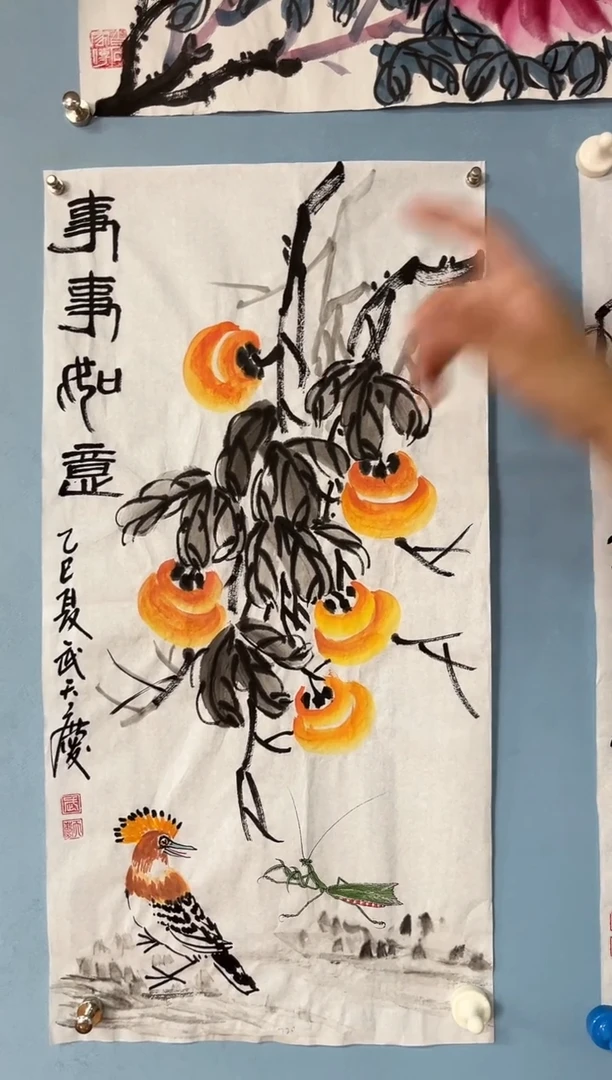 事事如意
乙巳夏武天慶